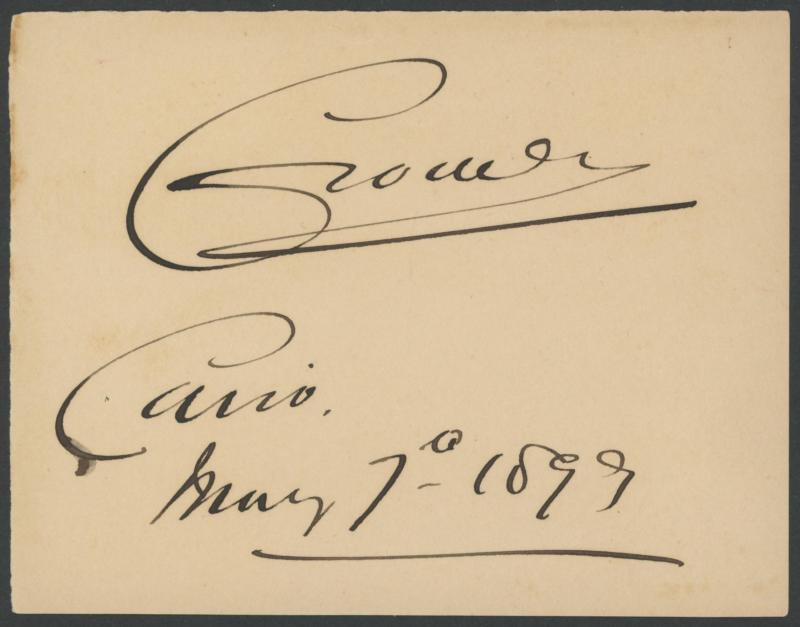 Cromer
Cairo.
May 7th 1899